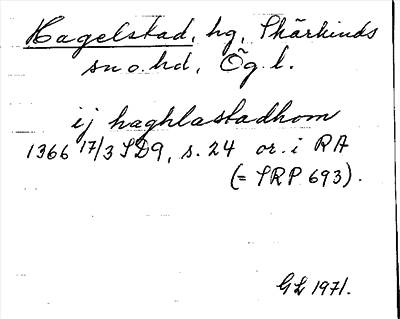 Hagelstad, hg, Skärkinds
sn o. hd, Ög. l.
ij haghlastadhom
1366 17/3 SD9, s. 24 or. i RA
(= SRP 693).
GL 1971.